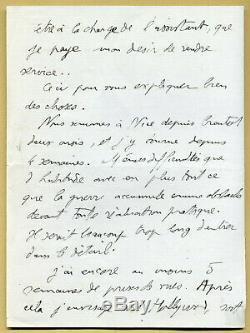 être à la charge de l'assistant, que
je paye mon désir de rendre
service..
Ceci pour vous expliquer bien
des choses.
Nous sommes à Nice depuis bientot
deux mois, et j'y tourne depuis
6 semaines. Mêmes difficultés que
d'habitude avec en plus tout ce
que la guerre accumule comme obstacles
devant toute réalisation pratique.
Il serait beaucoup trop long d'entrer
dans le détail.
J'ai encore au moins 5
semaines de prises de vues. Après
cela j'envisage soit Hollywood, soit